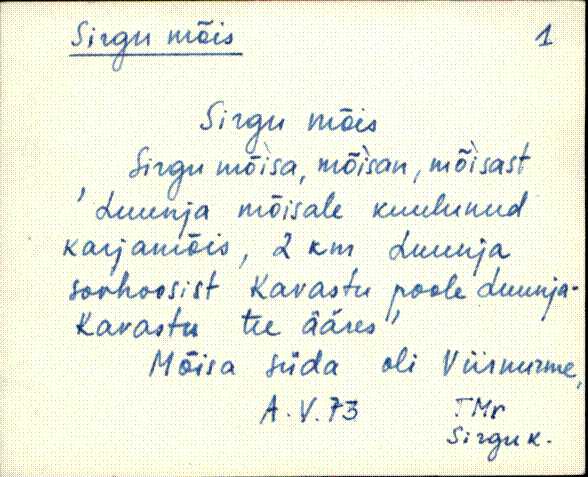 Sirgu mõis 1
Sirgu mõis
Sirgu mõ`isa, mõ`isan, mõ`isast
' Luunja mõisale kuulunud
karjamõis, 2 km Luunja
sovhoosist Kavastu poole Luunja-
Kavastu tee ääres'
Mõisa süda oli Viirnurme,
A.V.73 TMr
Sirgu k.